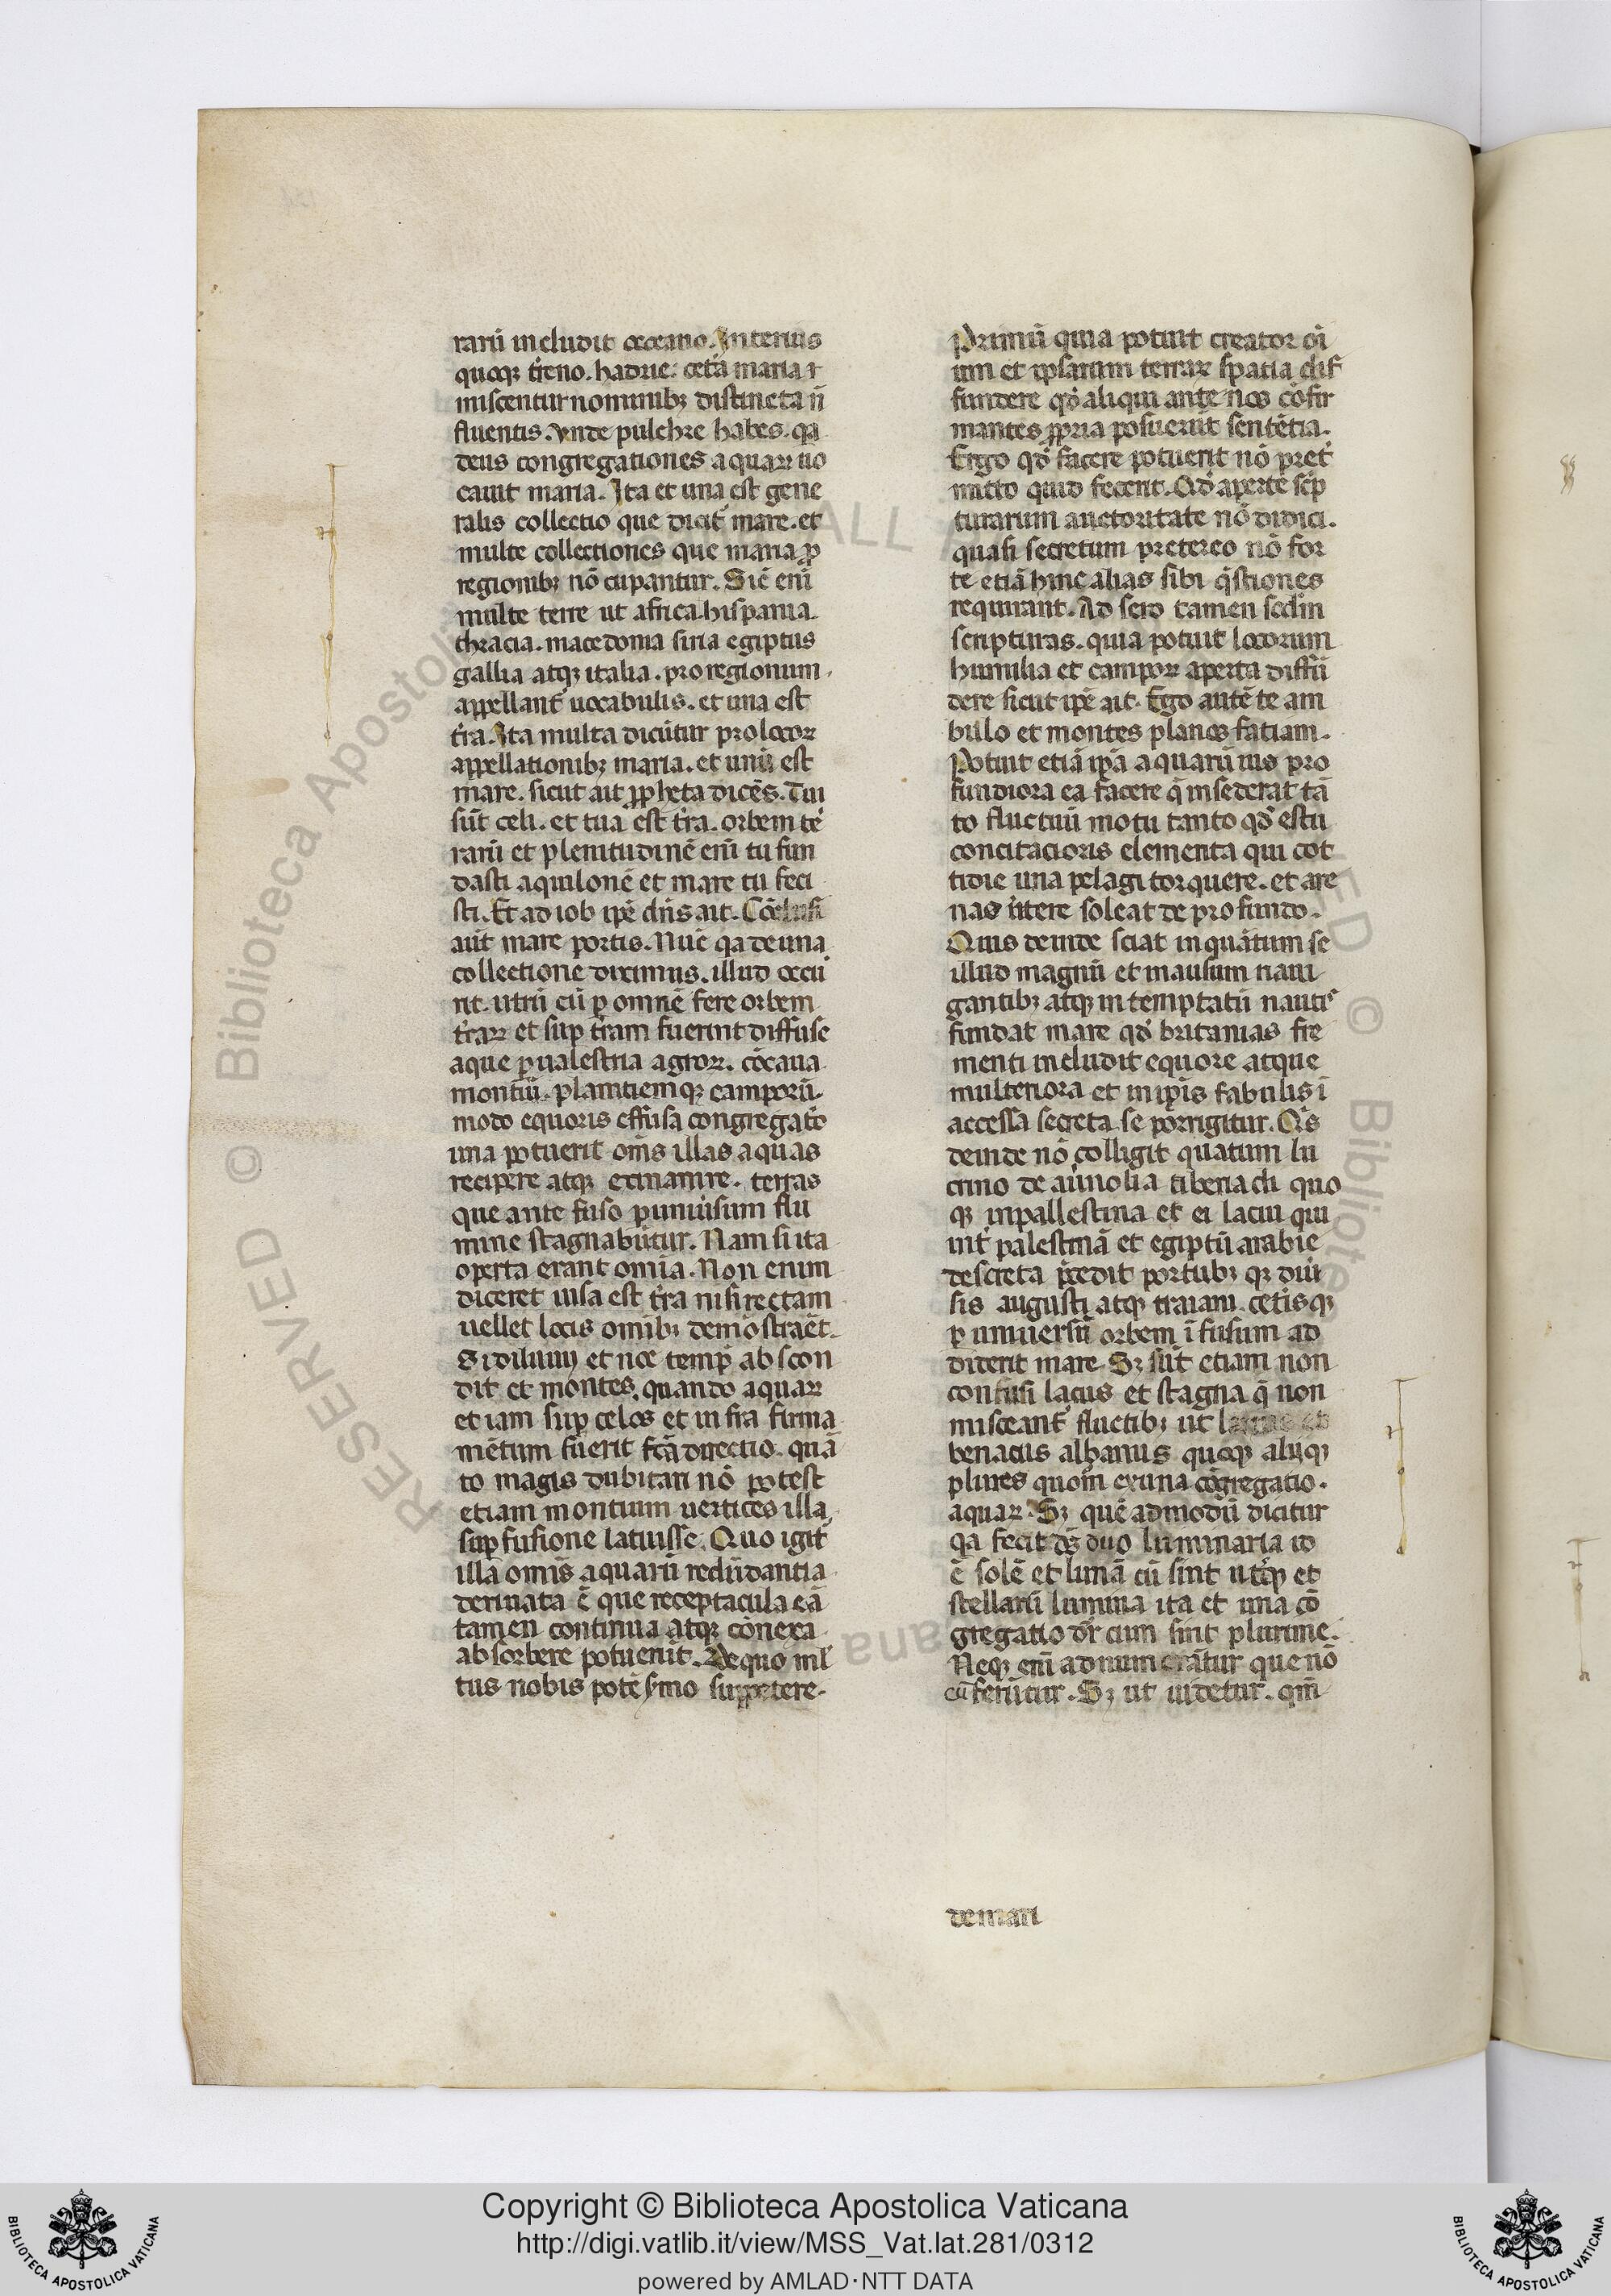 rarū includit occeano. Interius
quoqꝫ tireno. hadrie. cetā maria i
miscentur nominibꝫ distincta n̄
fluentis. Vnde pulchre habes. qa
deus congregationes aquarꝝ uo
cauit maria. Ita et una est gene
ralis collectio que dicit᷑ mare. et
multe collectiones que maria ꝓ
regionibꝫ nō cupantur. Sic enī
multe terre ut africa. hispania.
thracia. macedonia siria egiptus
gallia atqꝫ italia. pro regionum
appellant᷑ uocabulis. et una est
tr̄a. Ita multa dicūtur pro locoꝝ
appellationibꝫ maria. et unū est
mare. sicut ait ꝓpheta dicēs. Tui
sūt celi. et tua est tr̄a. orbem te
rarū et plenitudinē eiꝰ tu fun
dasti aquilonē et mare tu feci
sti. Et ad iob ipē dn̄s ait. Cōclusi
aūt mare portis. Nūc qa de una
collectione dicimus. illud occu
rit. utrū cū ꝑ omnē fere orbem
tr̄aꝝ et suꝑ tr̄am fuerint diffuse
aque ꝑ ualestria agroꝝ. cōcaua
montiū. planitiemqꝫ camporū.
modo equoris effusa congregatō
una potuerit om̄s illas aquas
recipere atqꝫ exinanire. terras
que ante fuso ꝑ uniuisum flu
mine stagnabūtur. Nam si ita
operta erant omīa. Non enim
diceret uisa est tr̄a nisi rectam
uellet locis omībꝫ demōstraēt.
Si diluuiū et noe temꝑ abscon
dit et montes. quando aquaꝝ
etiam suꝑ celos et infra firma
mētum fuerit fcā directio. quā
to magis dubitari nō potest
etiam montium uertices illa
suꝑfusione latuisse. Quo igit᷑
illa omīs aquarū redūdantia
deriuata ē que receptacula eā
tamen continua atqꝫ cōnexa
absorbere potuerīt. De quo ml̄
tus nobis potē ymo suppetere.
Primū quia potuit creator oī
um et ipsarum terraꝝ spatia dif
fundere qđ aliqui ante nos cōfir
mantes ꝓpria posuerūt sentētia.
Ergo qđ facere potuerit nō pret᷑
mitto quid fecerit. Qđ aperte scꝥ
turarum auctoritate nō didici.
quasi secretum pretereo nō for
te etiā hinc alias sibi qs̄tiones
requirant. Ad sero tamen scđm
scripturas. quia potuit locorum
humilia et campoꝝ aperta diffū
dere sicut ipē ait. Ego antē te am
bulo et montes planos fatiam.
Potuit etiā ipā aquarū uis pro
fundiora ea facere q̄ insederat tā
to fluctuū motu tanto qđ estu
concitacioris elementa qui cot
tidie una pelagi torquere. et are
nas uitere soleat de profundo.
Quis deinde sciat in quātum se
illud magnū et inausum naui
gantibꝫ atqꝫ in temptatū nautis
fundat mare qđ britanias fre
menti includit equore atque
in ulteriora et in ip̄is fabulis i
accessa secreta se porrigitur. Qis
deinde nō colligit quātum lu
crino de aūnolia tibenach quo
qꝫ in pallestina et ei lacui qui
int᷑ palestinā et egiptū arabie
descreta p̄tedit portubꝫ qꝫ diu
sis augusti atqꝫ traiani. cetisqꝫ
ꝑ uniuersū orbem īfusum ad
diderit mare. Sꝫ sūt etiam non
confusi lacus et stagna q̄ non
misceant᷑ fluctibꝫ ut
benacus albanus quoqꝫ alijqꝫ
plures quom̄ ex una cōgregatio.
aquaꝝ. Sꝫ quē admodū dicitur
qa fecit dꝰ duo luminaria id
ē solē et lunā cū sint utiqꝫ et
stellarū lumina ita et una cō
gregatio dr̄ cum sint plurime.
Neqꝫ enī adnumerātur que nō
cō ferūtur. Sꝫ ut uidetur. qm̄
de mari
Copyright © Biblioteca Apostolica Vaticana
http://digi.vatlib.it/view/MSS_Vat.lat.281/0312
powered by AMLAD·NTT DATA